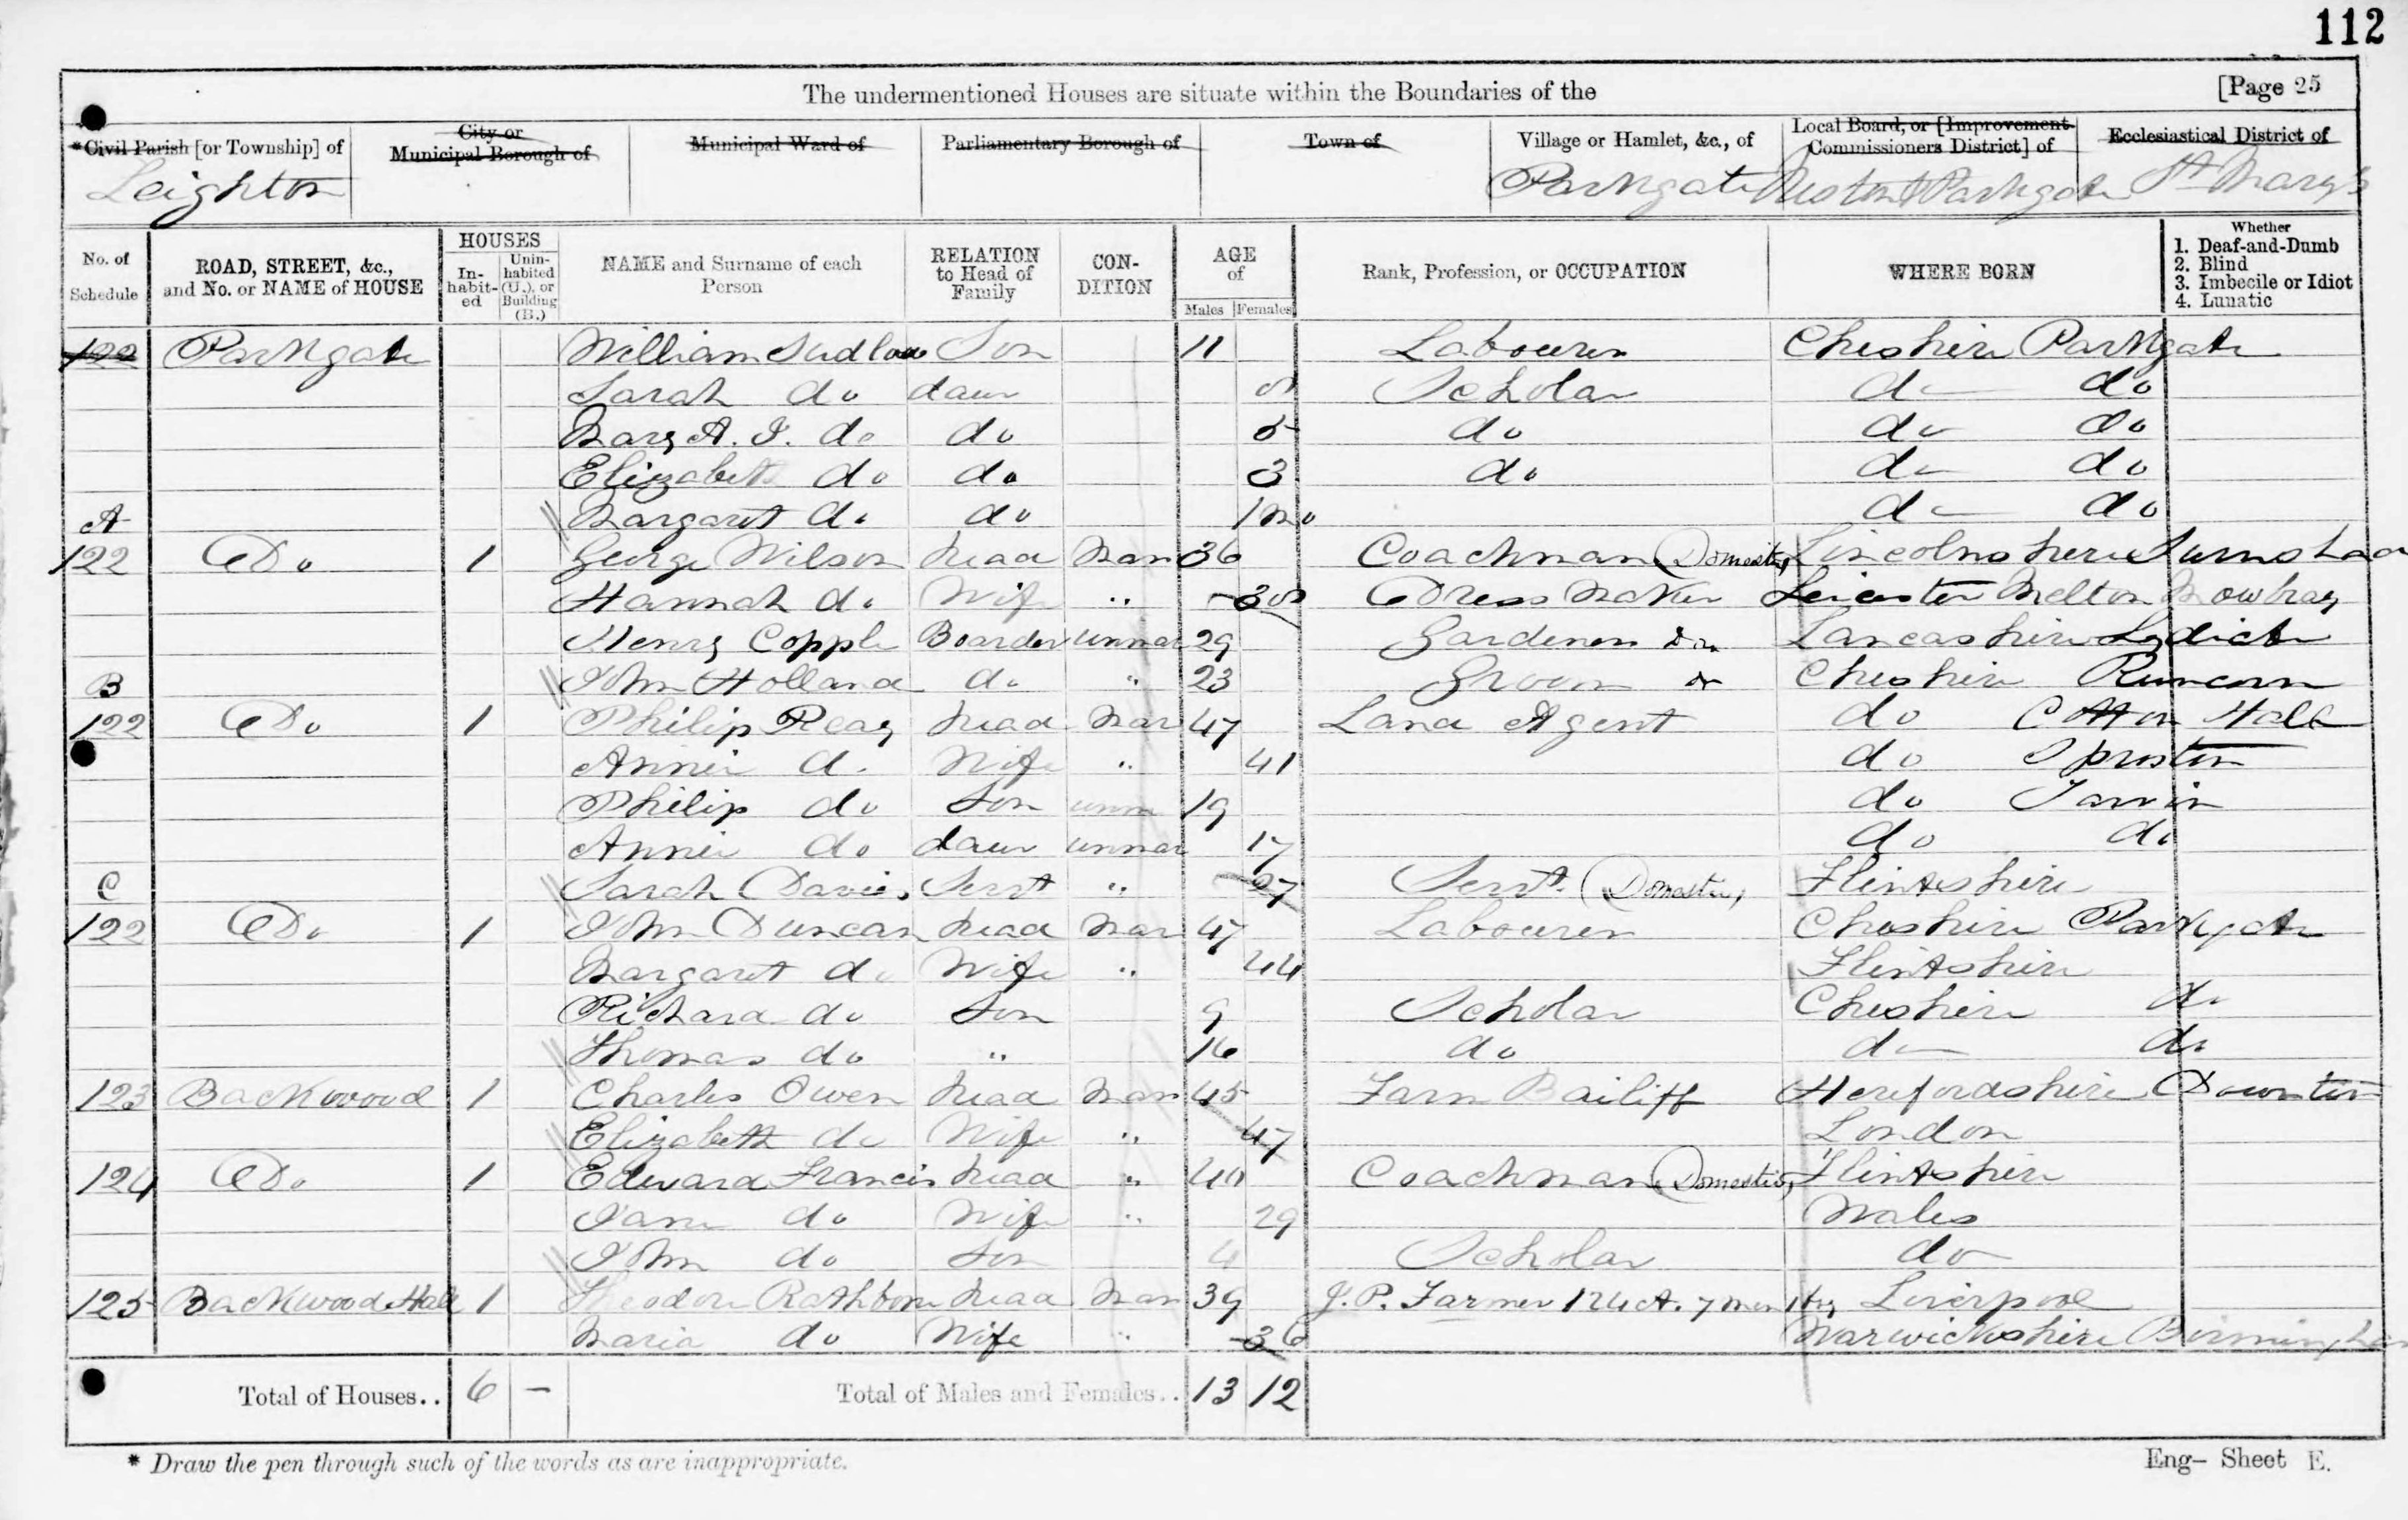 112
The undermentioned Houses are situate within the Boundaries of the [Page 25
*Civil Parish [or Township] of
Leighton
City or Municipal Borough of
Municipal Ward of
Parliamentary Borough of
Town of
Village or Hamlet, &c., of
Parkgate
Local Board, or [Improvement Commissioners District] of
Neston & Parkgate
Ecclesiastical District of
St Mary's
No. of Schedule
ROAD, STREET, &c., and No. or NAME of HOUSE
HOUSES
Inhabited
Uninhabited (U.), or Building (B.)
NAME and Surname of each Person
RELATION to Head of Family
CONDITION
AGE of
Males
Females
Rank, Profession, or OCCUPATION
WHERE BORN
Whether
1. Deaf-and-Dumb
2. Blind
3. Imbecile or Idiot
4. Lunatic
122 Parkgate William Sudlow Son 11 Labourer Cheshire Parkgate
Sarah do daur Scholar do do
Mary A. J. do do 5 do do do
Elizabeth do do 3 do do do
Margaret do do 1 mo do do
A
122 Do 1 George Wilson head Mar 36 Coachman (Domestic) Lincolnshire
Hannah do Wife " Dress Maker Leicester Melton Mowbray
Henry Copple Boarder unmar 29 Gardener Do Lancashire Lydiate
John Holland do " 23 Groom do Cheshire Runcorn
B
122 Do 1 Philip Reay head Mar 47 Land Agent do Cotton Hall
Annie do Wife " 41 do Sproston
Philip do Son unm 19 do Tarvin
Annie do daur unmar 17 do do
Sarah Davies Servt " 27 Servt. (Domestic) Flintshire
C
122 Do 1 John Duncan head Mar 47 Labourer Cheshire Parkgate
Margaret do Wife " 44 Flintshire
Richard do Son 9 Scholar Cheshire do
Thomas do " 16 do do do
123 Backwood 1 Charles Owen head Mar 45 Farm Bailiff Herefordshire Downton
Elizabeth do Wife " 47 London
124 Do 1 Edward Francis head " 40 Coachman (Domestic) Flintshire
Jane do Wife " 29 Wales
John do Son 4 Scholar do
125 Backwood Hall 1 Theodore Rathbone head Mar 39 J.P. Farmer 124 A. 7 men 1 by Liverpool
Maria do Wife " 36 Warwickshire Birmingham
Total of Houses.. 6 — Total of Males and Females.. 13 12
* Draw the pen through such of the words as are inappropriate.
Eng- Sheet E.